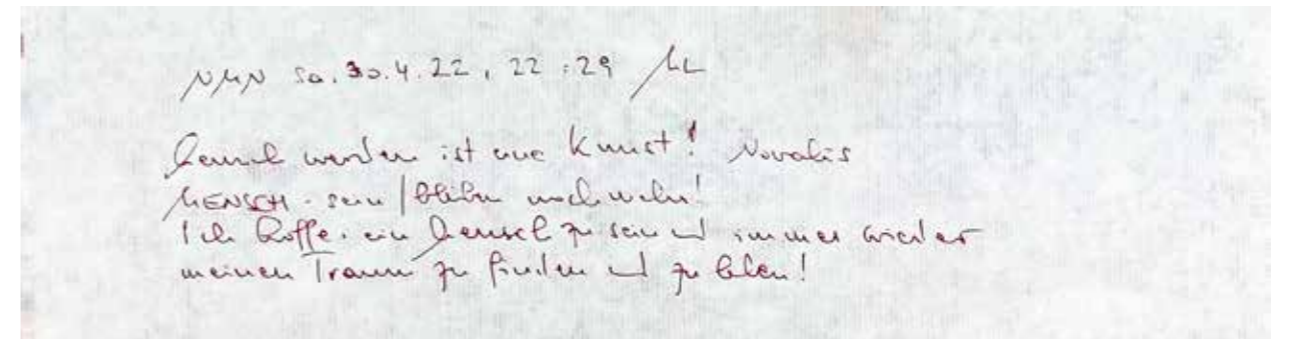 NMN Sa. 30.4.22, 22:29 ML
Mensch werden ist eine Kunst! Novalis
MENSCH-sein/bleiben noch mehr!
Ich hoffe, ein Mensch zu sein und immer wieder
meinen Traum zu finden und zu leben!